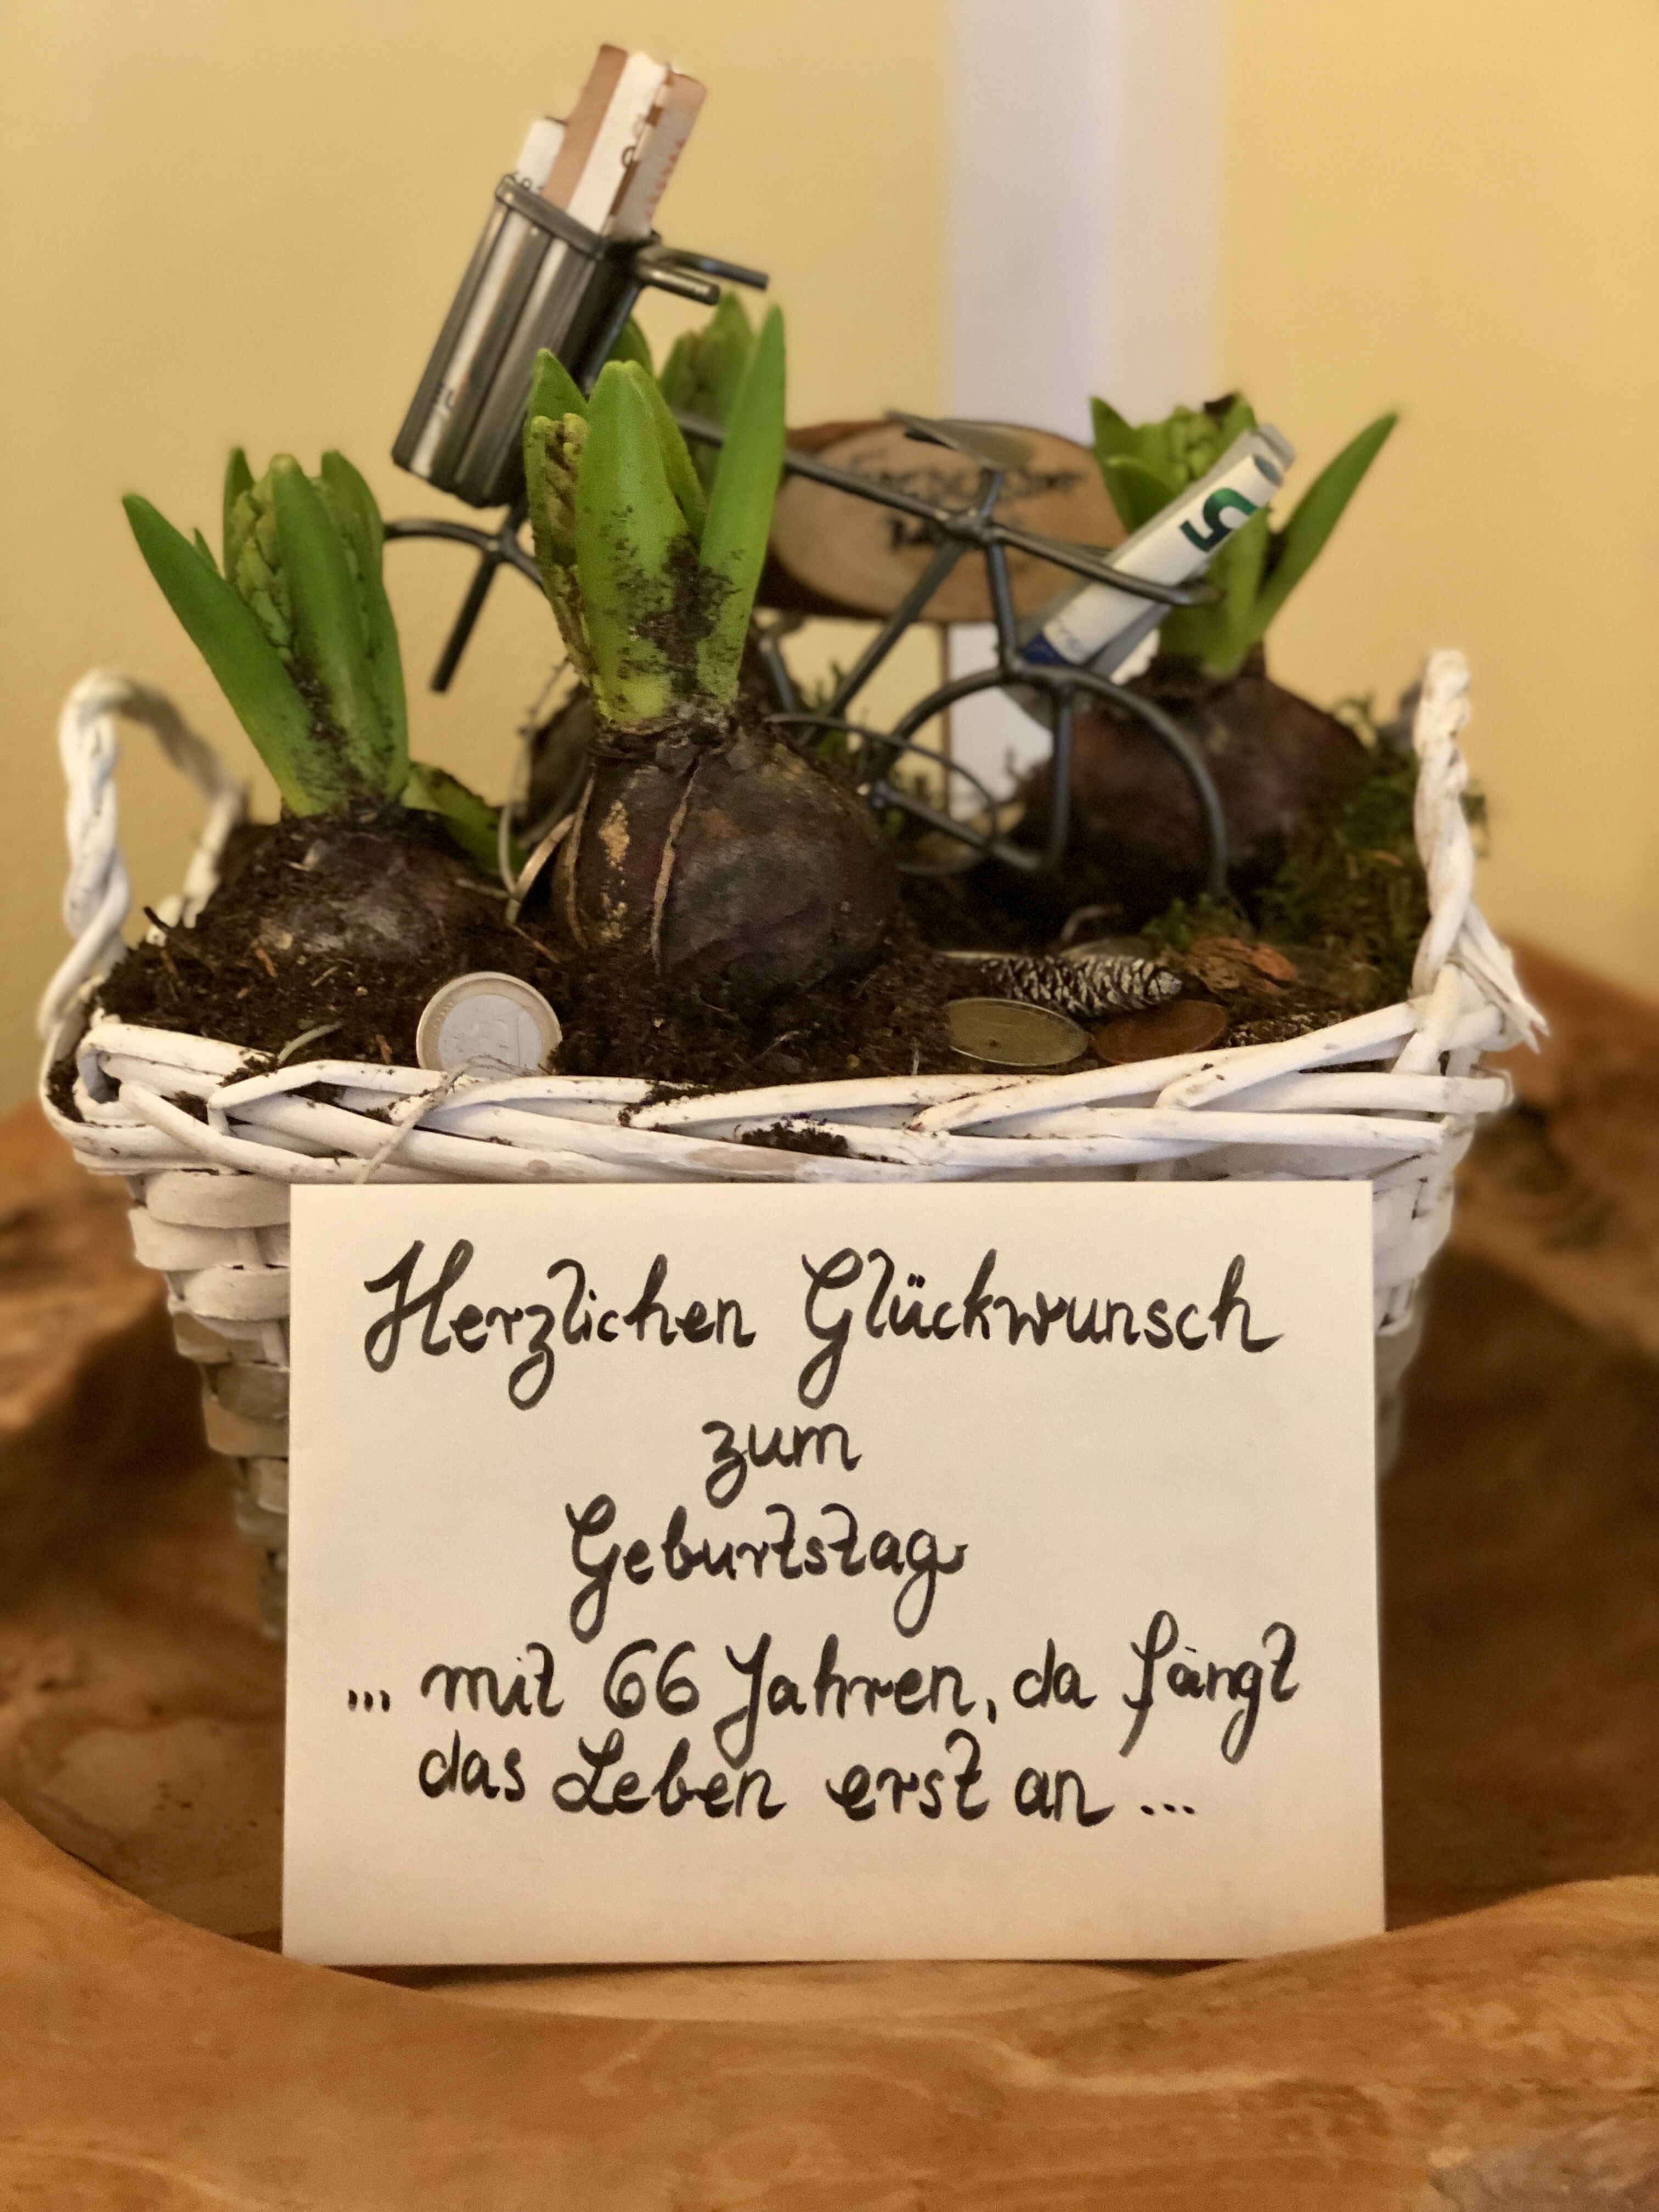 5
Herzlichen Glückwunsch
zum
Geburtstag
... mit 66 Jahren, da fängt
das Leben erst an ...